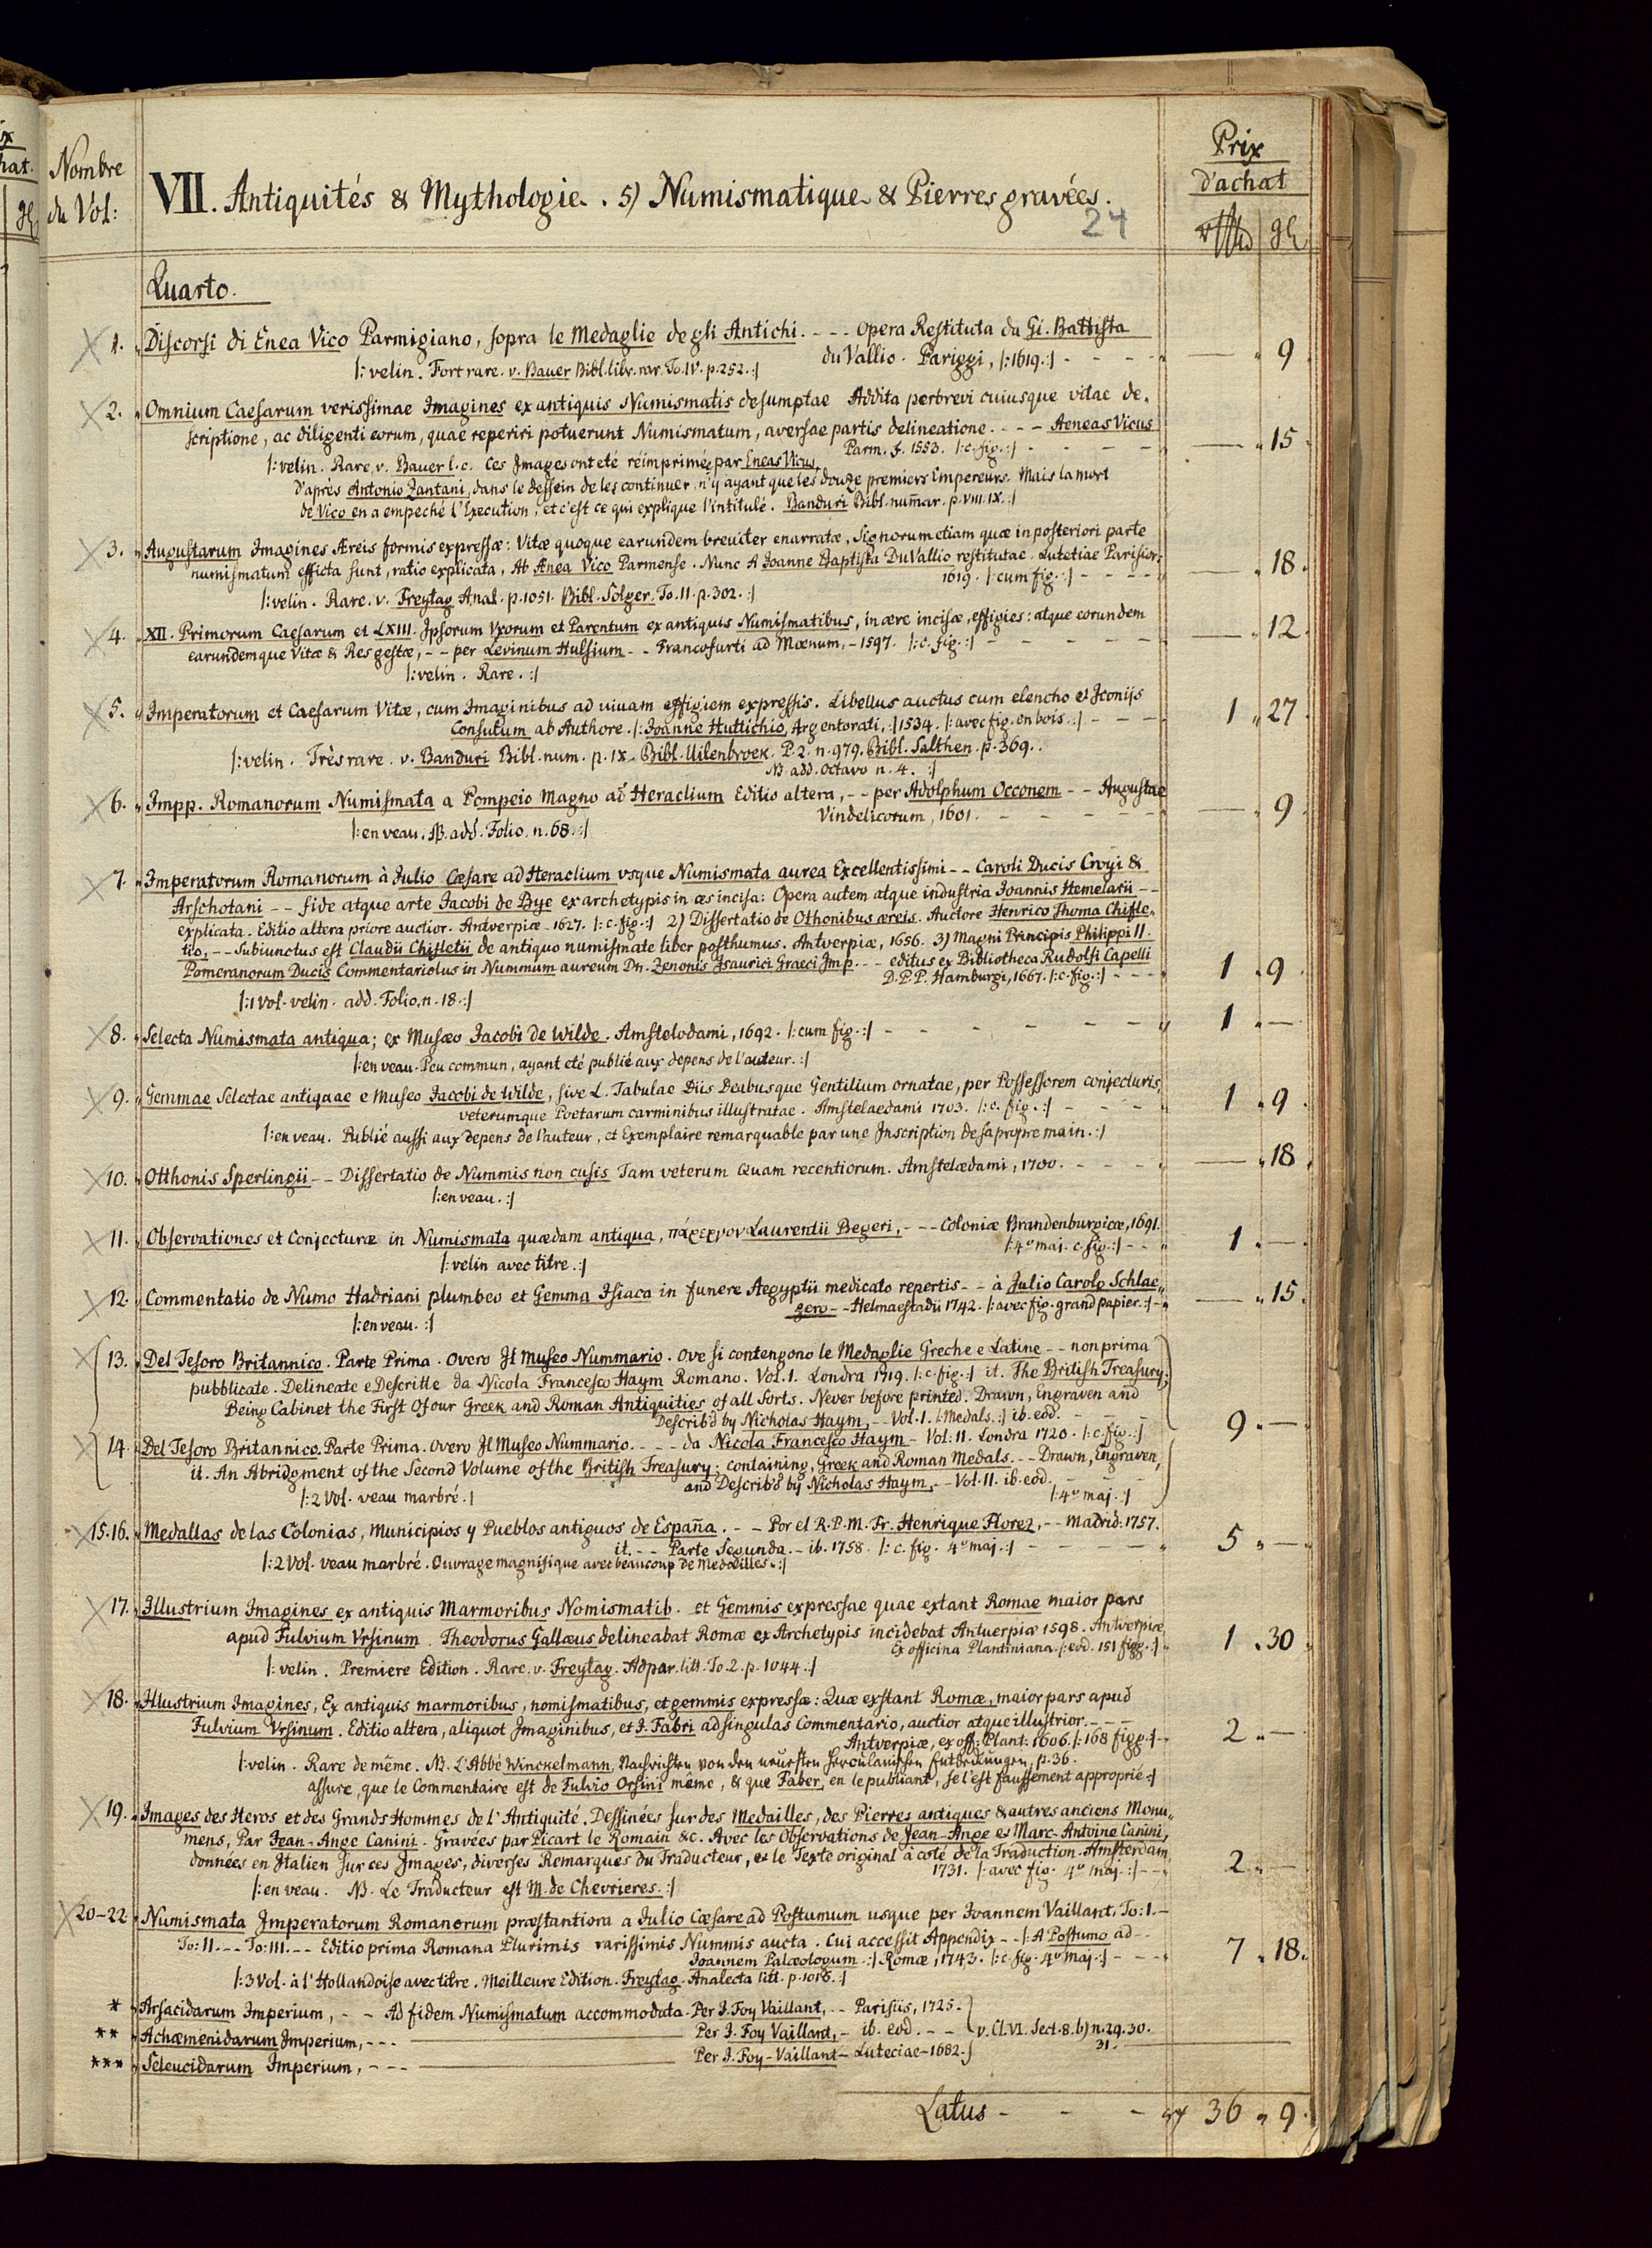 Nombre
du Vol:
VII. Antiquités & Mythologie. 5) Numismatique & Pierres gravées.
24
Prix
d'achat
Quarto.
1. Discorsi di Enea Vico Parmigiano, sopra le Medaglie degli Antichi. - - - Opera Restituta da Gi. Battista
du Vallio. Pariggi, /:1619.:/ - - - - — 9
/: velin. Fort rare. v. Bauer Bibl. libr. rar. To. IV. p. 252. :/
2. Omnium Caesarum verissimae Imagines ex antiquis Numismatis desumptae Addita perbrevi cuiusque vitae de-
scriptione, ac diligenti eorum, quae reperiri potuerunt Numismatum, aversae partis delineatione. - - - - Aeneas Vicus
Parm. f. 1553. /:c. fig.:/ - - - — 15
/: velin. Rare, v. Bauer l. c. Ces Images ont eté réimprimées par Eneas Vicus,
d'après Antonio Zantani, dans le dessein de les continuer, n'y ayant que les douze premiers Empereurs. Mais la mort
de Vico en a empeché l'Execution, et c'est ce qui explique l'intitulé. Banduri Bibl. numar. p. VIII. IX. :/
3. Augustarum Imagines Æreis formis expressæ: Vitæ quoque earundem breuiter enarratæ, Signorum etiam quæ in posteriori parte
numismatum efficta sunt, ratio explicata, Ab Ænea Vico Parmense. Nunc A Joanne Baptista Du Vallio restitutae. Lutetiae Parisior:
1619. /: cum fig.:/ - - - - — 18.
/: velin. Rare. v. Freytag Anal. p. 1051. Bibl. Solger. To. II. p. 302. :/
4. XII. Primorum Caesarum et LXIII. Ipsorum Vxorum et Parentum ex antiquis Numismatibus, in ære incisæ, effigies: atque eorundem
earundemque Vitæ & Res gestæ, - - per Levinum Hulsium - - Francofurti ad Mœnum, - 1597. /: c. fig.:/ — 12.
/: velin. Rare. :/
5. Imperatorum et Caesarum Vitæ, cum Imaginibus ad viuam effigiem expressis. Libellus auctus cum elencho et Iconijs
Consulum ab Authore. /: Joanne Huttichio, Argentorati, :/ 1534. /: avec fig. en bois. :/ - - - 1 27
/: velin. Très rare. v. Banduri Bibl. num. p. IX. Bibl. Uilenbroek. P. 2. n. 979. Bibl. Salthen. p. 369..
NB. add. Octavo n. 4. :/
6. Impp. Romanorum Numismata a Pompeio Magno ad Heraclium Editio altera, - - per Adolphum Occonem - - Augustae
Vindelicorum, 1601. - - - - — 9.
/: en veau. NB. add. Folio. n. 68. :/
7. Imperatorum Romanorum à Julio Cæsare ad Heraclium vsque Numismata aurea Excellentissimi - - Caroli Ducis Croyi &
Arschotani - - fide atque arte Jacobi de Bye ex archetypis in æs incisa: Opera autem atque industria Joannis Hemelarii - -
explicata. Editio altera priore auctior. Antverpiæ - 1627. /: c. fig.:/ 2) Dissertatio de Othonibus æreis. Auctore Henrico Thoma Chifle-
tio, - - - Subiunctus est Claudii Chifletii de antiquo numismate liber posthumus. Antverpiæ, 1656. 3) Magni Principis Philippi II.
Pomeranorum Ducis Commentariolus in Nummum aureum Dn. Zenonis Isaurici Graeci Imp. - - - editus ex Bibliotheca Rudolfi Capelli
D. P. P. Hamburgi, 1667. /: c. fig.:/ - - - - 1 9
/: 1 Vol. velin. add. Folio, n. 18. :/
8. Selecta Numismata antiqua; ex Musæo Jacobi de Wilde. Amstelodami, 1692. /: cum fig.:/ - - - - - - 1 —
/: en veau. Peu commun, ayant eté publié aux depens de l'auteur. :/
9. Gemmae Selectae antiquae e Museo Jacobi de Wilde, sive L. Tabulae Diis Deabusque Gentilium ornatae, per Possessorem conjecturis,
veterumque Poetarum carminibus illustratae. Amstelaedami 1703. /: c. fig.:/ - - - - 1 9
/: en veau. Publié aussi aux depens de l'auteur, et Exemplaire remarquable par une Inscription de sa propre main. :/
10. Otthonis Sperlingii - - Dissertatio de Nummis non cusis Tam veterum Quam recentiorum. Amstelædami, 1700. - - - - — 18
/: en veau. :/
11. Observationes et Conjecturæ in Numismata quædam antiqua, πάρεργον Laurentii Begeri, - - - Coloniæ Brandenburgicæ, 1691.
/: 4º maj. c. fig.:/ - - 1 —
/: velin avec titre. :/
12. Commentatio de Numo Hadriani plumbeo et Gemma Isiaca in funere Aegyptii medicato repertis - - à Julio Carolo Schlae-
gero - - Helmaestadii 1742. /: avec fig. grand papier. :/ - — 15.
/: en veau. :/
13. Del Tesoro Britannico. Parte Prima. Overo Il Museo Nummario. Ove si contengono le Medaglie Greche e Latine - - non prima
pubblicate. Delineate e Descritte da Nicola Francesco Haym Romano. Vol. I. Londra 1719. /: c. fig.:/ it. The British Treasury;
Being Cabinet the First Of our Greek and Roman Antiquities of all Sorts. Never before printed. Drawn, Engraven and
Describ'd by Nicholas Haym, - - Vol. I. /: Medals. :/ ib. eod. - - - 9 —
14. Del Tesoro Britannico. Parte Prima. Overo Il Museo Nummario. - - - - da Nicola Francesco Haym - Vol: II. Londra 1720. /: c. fig.:/
it. An Abridgment of the Second Volume of the British Treasury; containing, Greek and Roman Medals. - - Drawn, Engraven,
and Describ'd by Nicholas Haym, - - Vol. II. ib. eod. - - - -
/: 2 Vol. veau marbré. / /: 4º maj. :/
15. 16. Medallas de las Colonias, Municipios y Pueblos antiguos de España. - - - Por el R. P. M. Fr. Henrique Florez, - - Madrid: 1757.
it. - - Parte Segunda. - ib. 1758. /: c. fig. 4º maj. :/ - - - - 5 —
/: 2 Vol. veau marbré. Ouvrage magnifique avec beaucoup de Medailles. :/
17. Illustrium Imagines ex antiquis Marmoribus Nomismatib. et Gemmis expressae quae extant Romae maior pars
apud Fulvium Vrsinum. Theodorus Gallæus delineabat Romæ ex Archetypis incidebat Antuerpiæ 1598. Antverpiæ,
Ex officina Plantiniana. /: eod. 151 figg. :/ 1 30
/: velin. Premiere Edition. Rare. v. Freytag. Adpar. litt. To. 2. p. 1044. :/
18. Illustrium Imagines, Ex antiquis marmoribus, nomismatibus, et gemmis expressæ: Quæ exstant Romæ, maior pars apud
Fulvium Vrsinum. Editio altera, aliquot Imaginibus, et J. Fabri ad singulas Commentario, auctior atque illustrior. - - - -
Antverpiæ, ex off. Plant: 1606. /: 168 figg. :/ - 2 —
/: velin. Rare de même. NB. L'Abbé Winckelmann, Nachrichten von den neuesten Herculanischen Entdeckungen, p. 36.
assure, que le Commentaire est de Fulvio Orsini même, & que Faber, en le publiant, se l'est faussement approprié :/
19. Images des Heros et des Grands Hommes de l'Antiquité. Dessinées sur des Medailles, des Pierres antiques & autres anciens Monu-
mens, Par Jean-Ange Canini. Gravées par Picart le Romain &c. Avec les Observations de Jean-Ange et Marc-Antoine Canini,
données en Italien sur ces Images, diverses Remarques du Traducteur, et le Texte original à coté de la Traduction. Amsterdam,
1731. /: avec fig. 4º maj. :/ - - 2 —
/: en veau. NB. Le Traducteur est M. de Chevrieres. :/
20-22. Numismata Imperatorum Romanorum præstantiora a Julio Cæsare ad Postumum usque per Joannem Vaillant. To: I. -
To: II. - - To: III. - - Editio prima Romana Plurimis rarissimis Nummis aucta. Cui accessit Appendix - - /: A Postumo ad - -
Joannem Palæologum. :/ Romæ, 1743. /: c. fig. 4º maj. :/ - - - 7 18.
/: 3 Vol. à l'Hollandoise avec titre. Meilleure Edition. Freytag. Analecta litt. p. 1018. :/
* Arsacidarum Imperium, - - Ad fidem Numismatum accommodata. Per J. Foy Vaillant, - - Parisiis, 1725.
** Achæmenidarum Imperium, - - - Per J. Foy Vaillant, - ib. eod. - - v. Cl. VI. Sect. 8. b) n. 29. 30.
31.
*** Seleucidarum Imperium, - - - Per J. Foy-Vaillant - Luteciae - 1682.
Latus - - - 36 9.